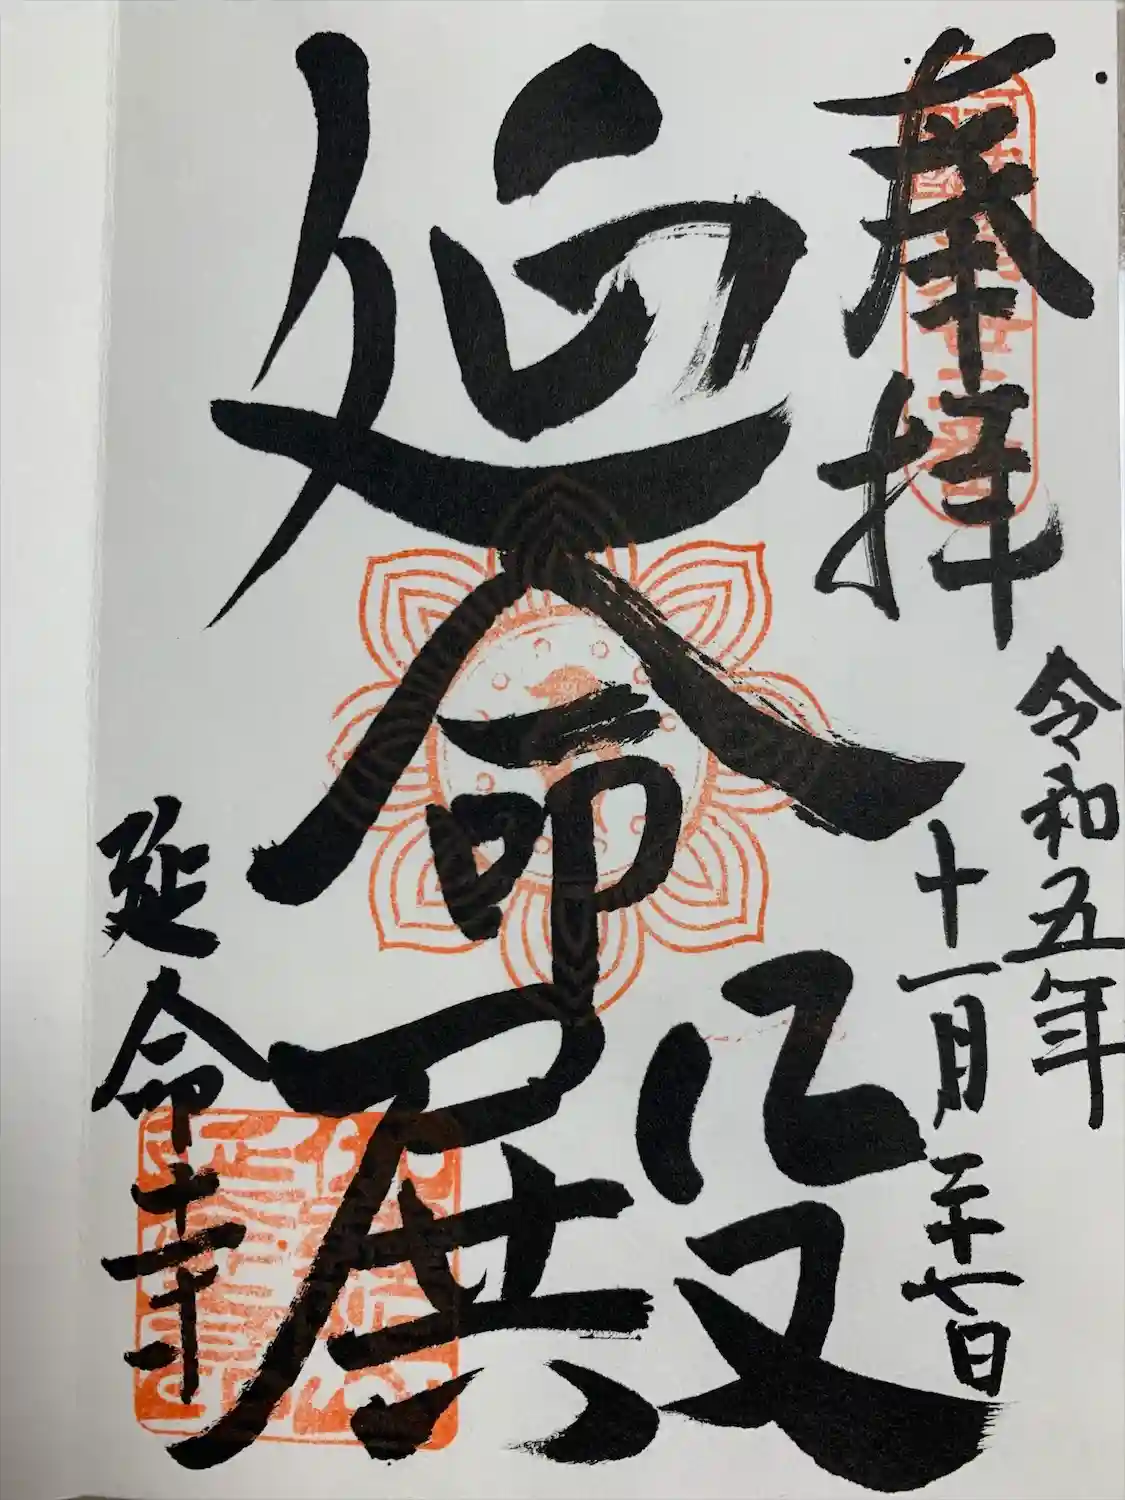 奉拝
令和五年
十一月二十七日
延命殿
延命寺